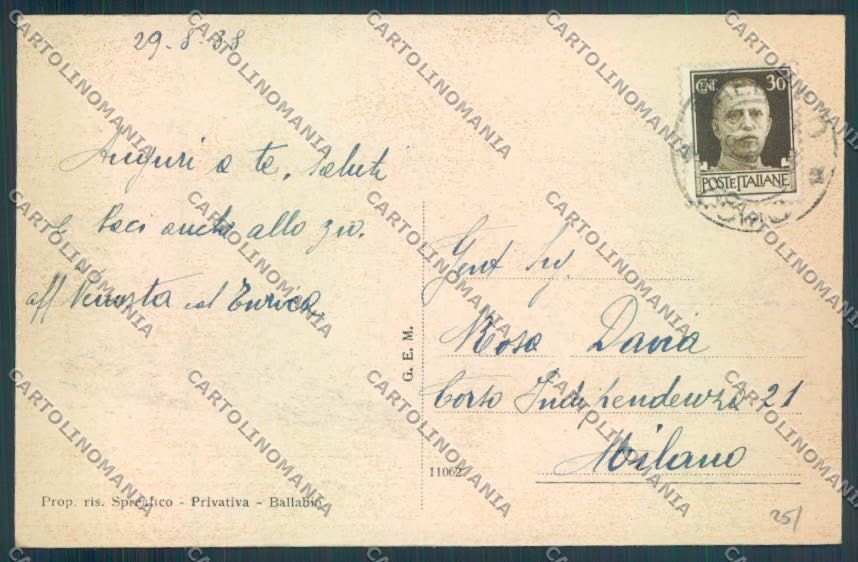 29-8-38
CENT 30
POSTE ITALIANE
Auguri a te, saluti
e baci anche allo zio.
aff ed Enrica
Gent Sig.
Rosa Davia
Corso Indipendenza 21
Milano
G. E. M.
11062
Prop. ris. Spreafico - Privativa - Ballabio
25/
CARTOLINOMANIA